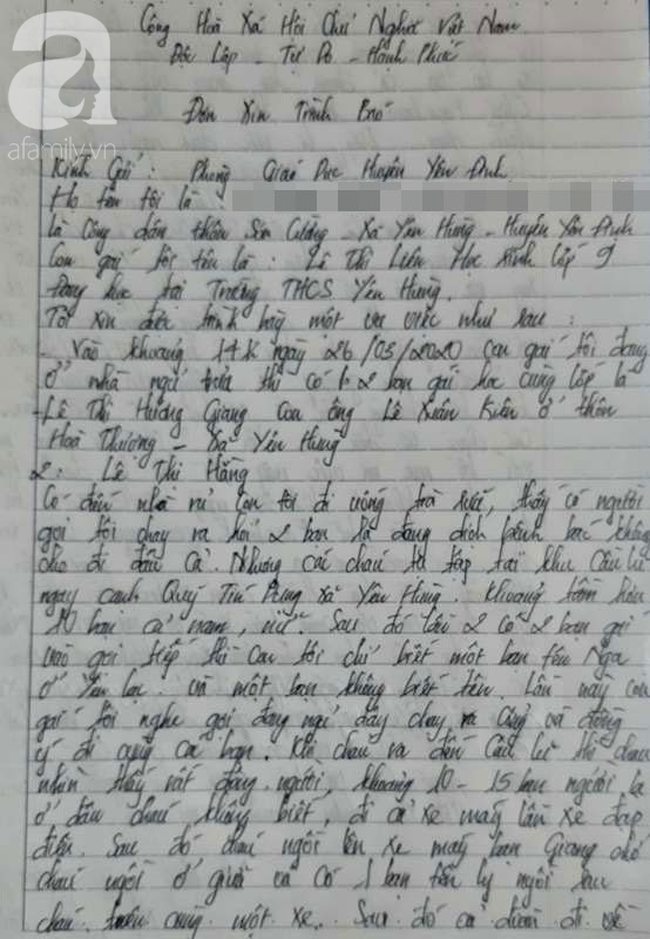 Cộng Hoà Xã Hội Chủ Nghĩa Việt Nam
Độc Lập - Tự Do - Hạnh Phúc
Đơn Xin Trình Báo
a
afamily.vn
Kính Gửi : Phòng Giáo Dục Huyện Yên Định
Họ tên tôi là :
Là Công dân thôn Sơn Cường - Xã Yên Hùng - Huyện Yên Định
Con gái tôi tên là : Lê Thị Liên Học sinh lớp 9
Đang học tại Trường THCS Yên Hùng.
Tôi xin được trình bày một vụ việc như sau :
- Vào khoảng 14h ngày 26/03/2020 con gái tôi đang
ở nhà ngủ trưa thì có 2 bạn gái học cùng lớp là
- Lê Thị Hương Giang con ông Lê Xuân Kiên ở thôn
Hoà Thượng - Xã Yên Hùng
2: Lê Thị Hằng
Có đến nhà rủ con tôi đi uống trà sữa, thấy có người
gọi tôi chạy ra hỏi 2 bạn là đang dịch bệnh bác không
cho đi đâu cả. Nhưng các cháu tụ tập tại khu Cầu lê
ngay cạnh Quỹ Tín Dụng Xã Yên Hùng. Khoảng tầm hơn
10 bạn cả nam, nữ. Sau đó lần 2 có 2 bạn gái
vào gọi tiếp thì con tôi chỉ biết một bạn tên Nga
ở Yên lạc. và một bạn không biết tên. Lần này con
gái tôi nghe gọi đang ngủ dậy chạy ra cổng và đồng
ý đi cùng các bạn. Khi cháu ra đến Cầu lê thì cháu
nhìn thấy rất đông người, khoảng 10 - 15 bạn người lạ
ở đâu cháu không biết, đi cả xe máy lẫn xe đạp
điện. Sau đó cháu ngồi lên xe máy bạn Giang chở
cháu ngồi ở giữa và có 1 bạn tên Ly ngồi sau
cháu. trên cùng một xe. Sau đó cả đi về